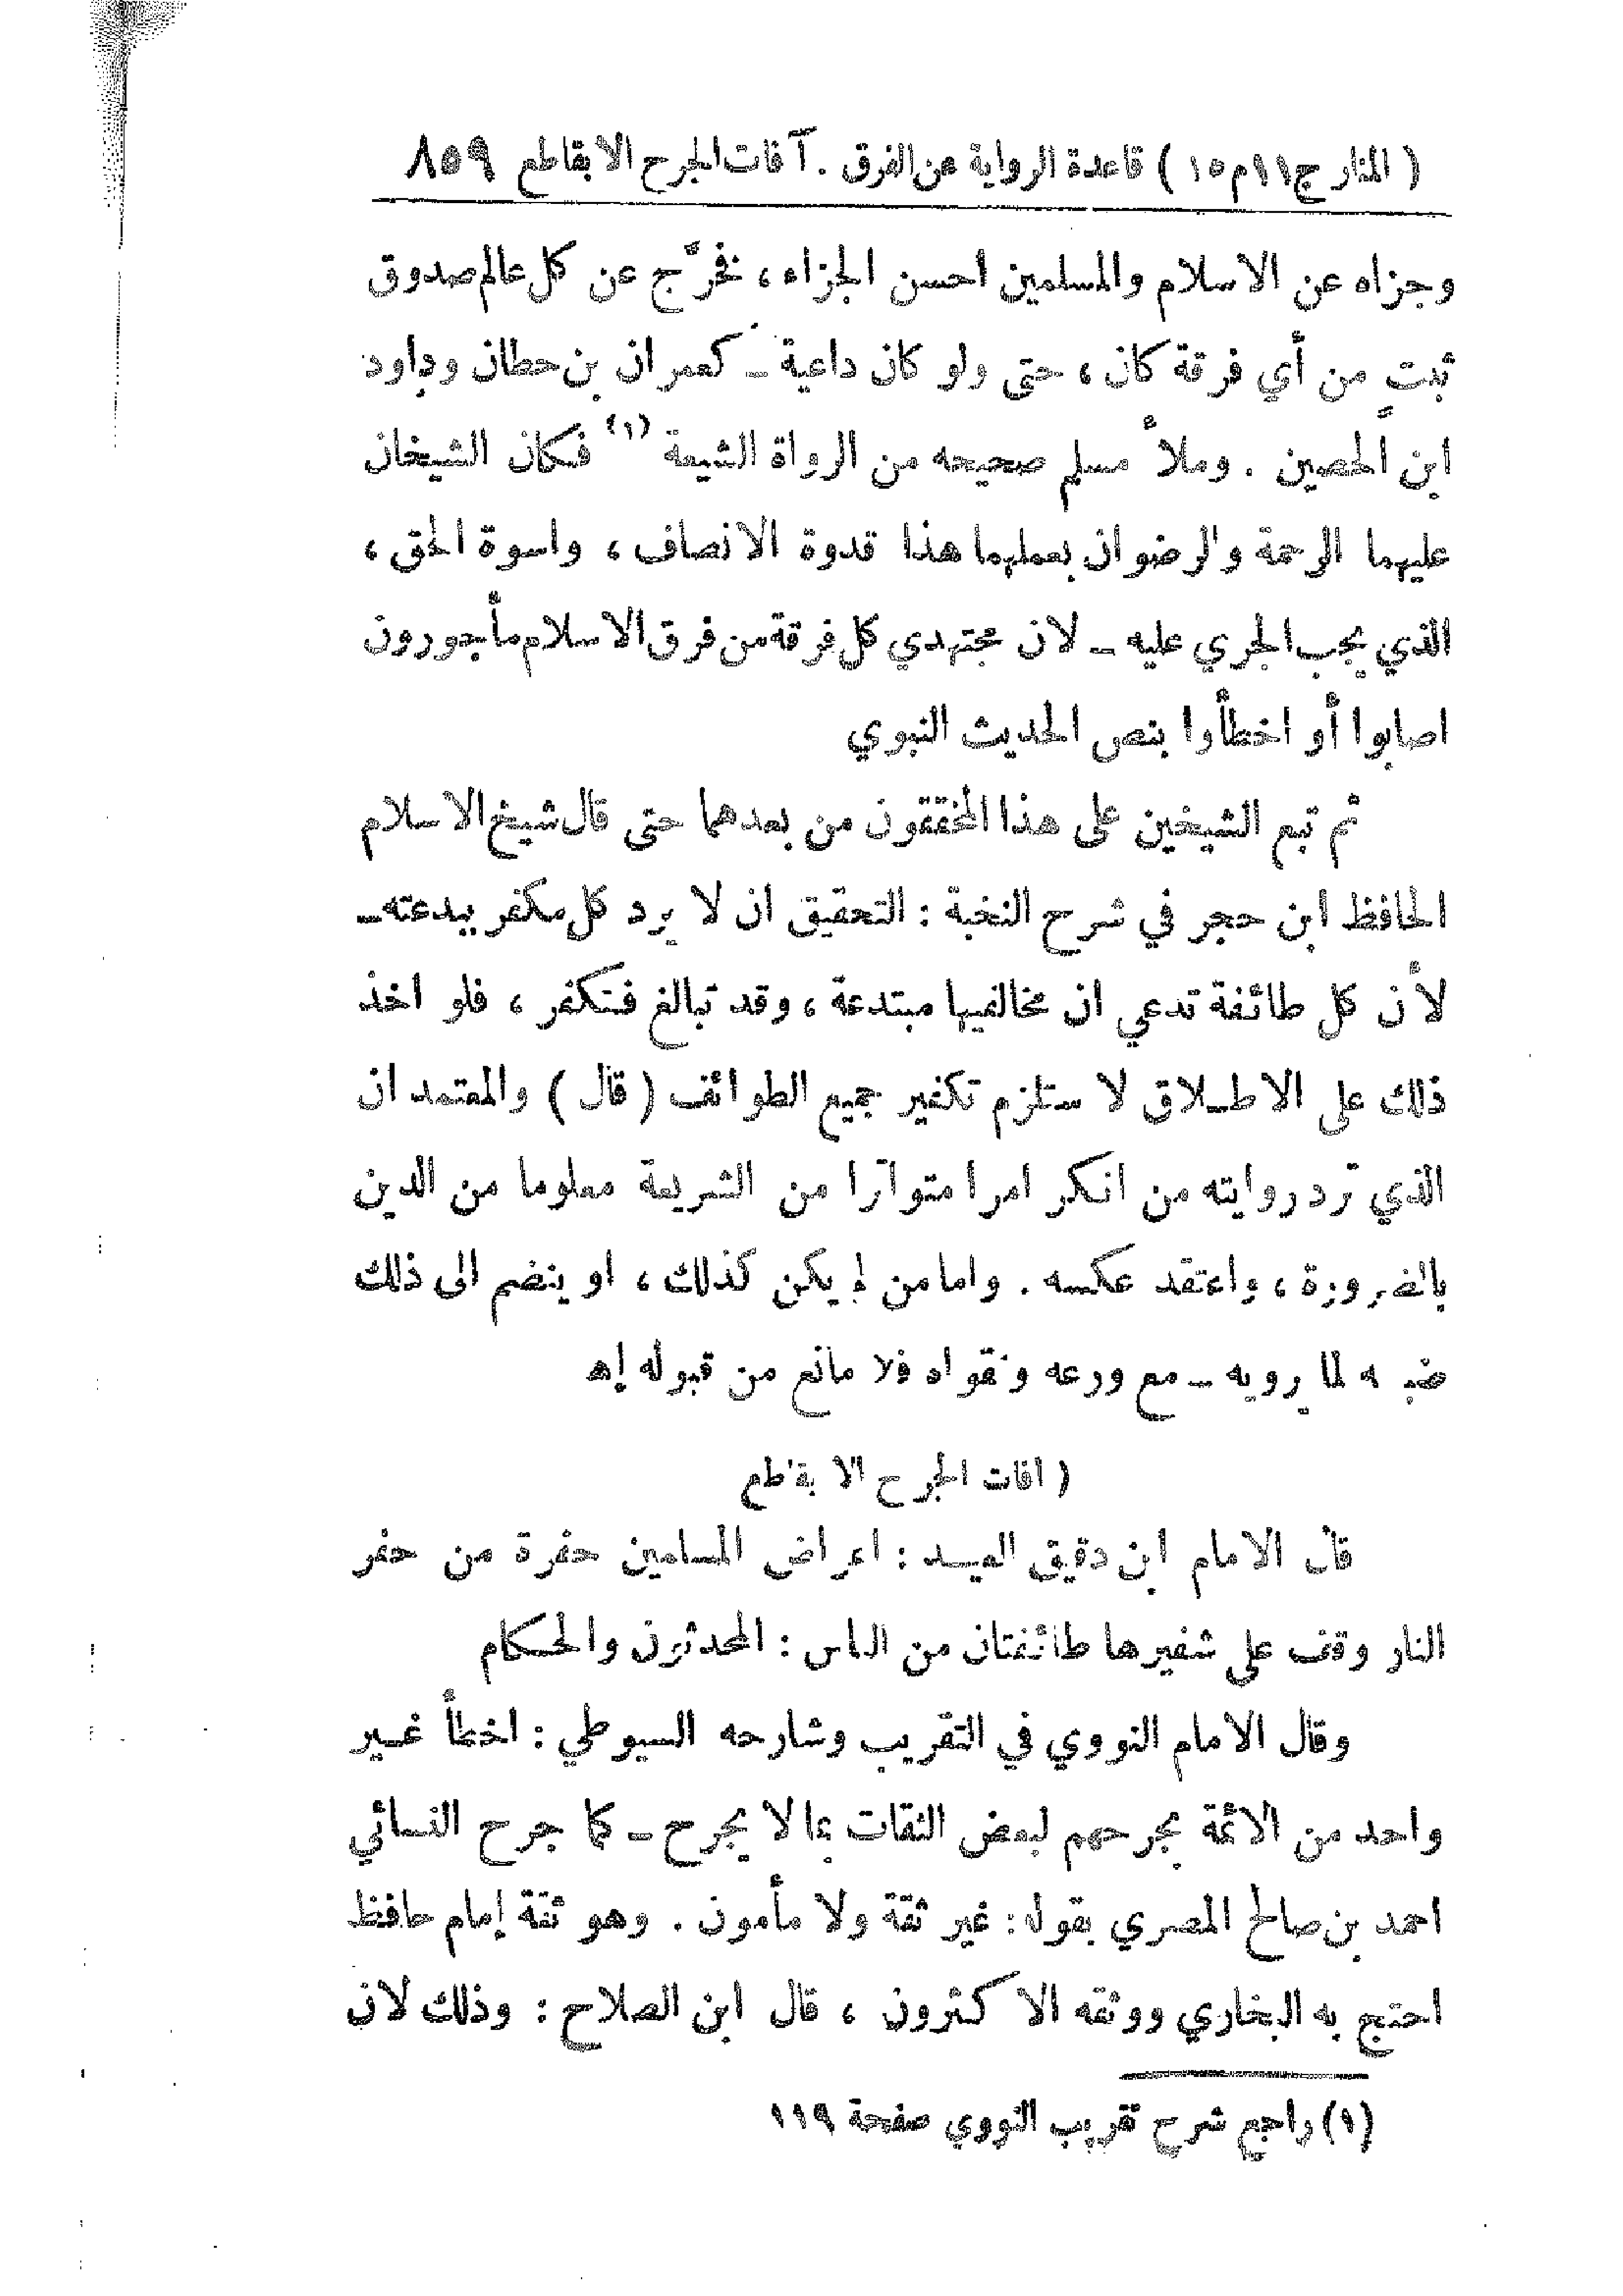 ( المنار ج١١م١٥ ) قاعدة الرواية عن الفرق . آفات الجرح الا بقاطع ٨٥٩
وجزاه عن الاسلام والمسلمين احسن الجزاء ، فخرّج عن كل عالم صدوق
ثبتٍ من أي فرقة كان ، حتى ولو كان داعية ـ كعمران بن حطان وداود
ابن الحصين . وملأ مسلم صحيحه من الرواة الشيعة (١) فكان الشيخان
عليهما الرحمة والرضوان بعملهما هذا قدوة الانصاف ، واسوة الحق ،
الذي يجب الجري عليه ـ لان مجتهدي كل فرقة من فرق الاسلام مأجورون
اصابوا أو اخطأوا بنص الحديث النبوي
ثم تبع الشيخين على هذا المحققون من بعدهما حتى قال شيخ الاسلام
الحافظ ابن حجر في شرح النخبة : التحقيق ان لا يرد كل مكفر ببدعته ـ
لأن كل طائفة تدعي ان مخالفيها مبتدعة ، وقد تبالغ فتكفر ، فلو اخذ
ذلك على الاطلاق لاستلزم تكفير جميع الطوائف ( قال ) والمعتمد ان
الذي ترد روايته من انكر امرا متواترا من الشريعة معلوما من الدين
بالضرورة ، واعتقد عكسه . واما من لم يكن كذلك ، او ينضم الى ذلك
ضبطه لما يرويه ـ مع ورعه وتقواه فلا مانع من قبوله إهـ
( افات الجرح الا بقاطع
قال الامام ابن دقيق العيد : اعراض المسلمين حفرة من حفر
النار وقف على شفيرها طائفتان من الناس : المحدثون والحكام
وقال الامام النووي في التقريب وشارحه السيوطي : اخطأ غير
واحد من الائمة بجرحهم لبعض الثقات بما لا يجرح ـ كما جرح النسائي
احمد بن صالح المصري بقوله : غير ثقة ولا مأمون . وهو ثقة إمام حافظ
احتج به البخاري ووثقه الاكثرون ، قال ابن الصلاح : وذلك لان
(١) راجع شرح تقريب النووي صفحة ١١٩